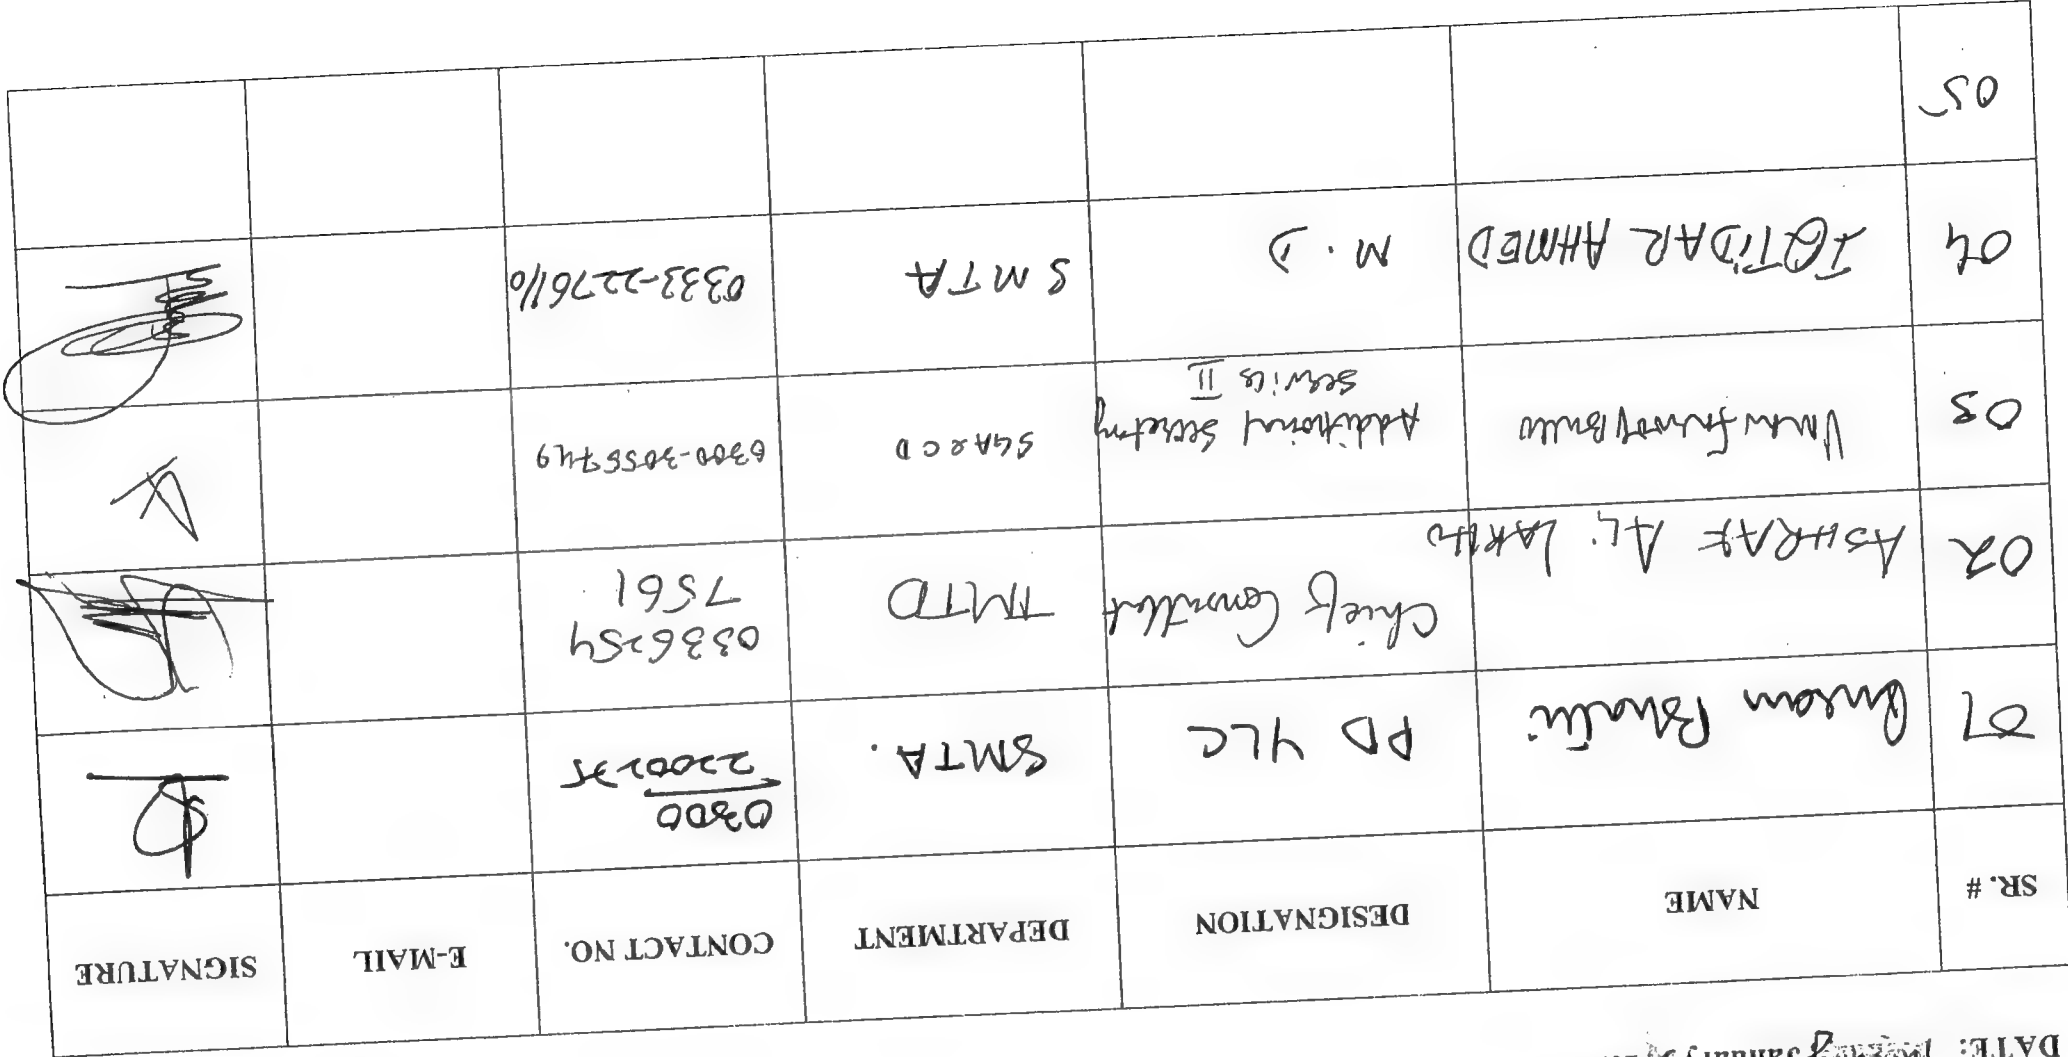 DATE: January
SR. # NAME DESIGNATION DEPARTMENT CONTACT NO. E-MAIL SIGNATURE
01 Bhatti PD YLC SMTA. 0300
2200275
02 ASHRAF ALi LAKHO Chief Consultant TMTD 0336254
7561
03 Additional Secretary SGA&CD 0300-3055749
Services II
04 IQTIDAR AHMED M.D SMTA 0333-2276110
05